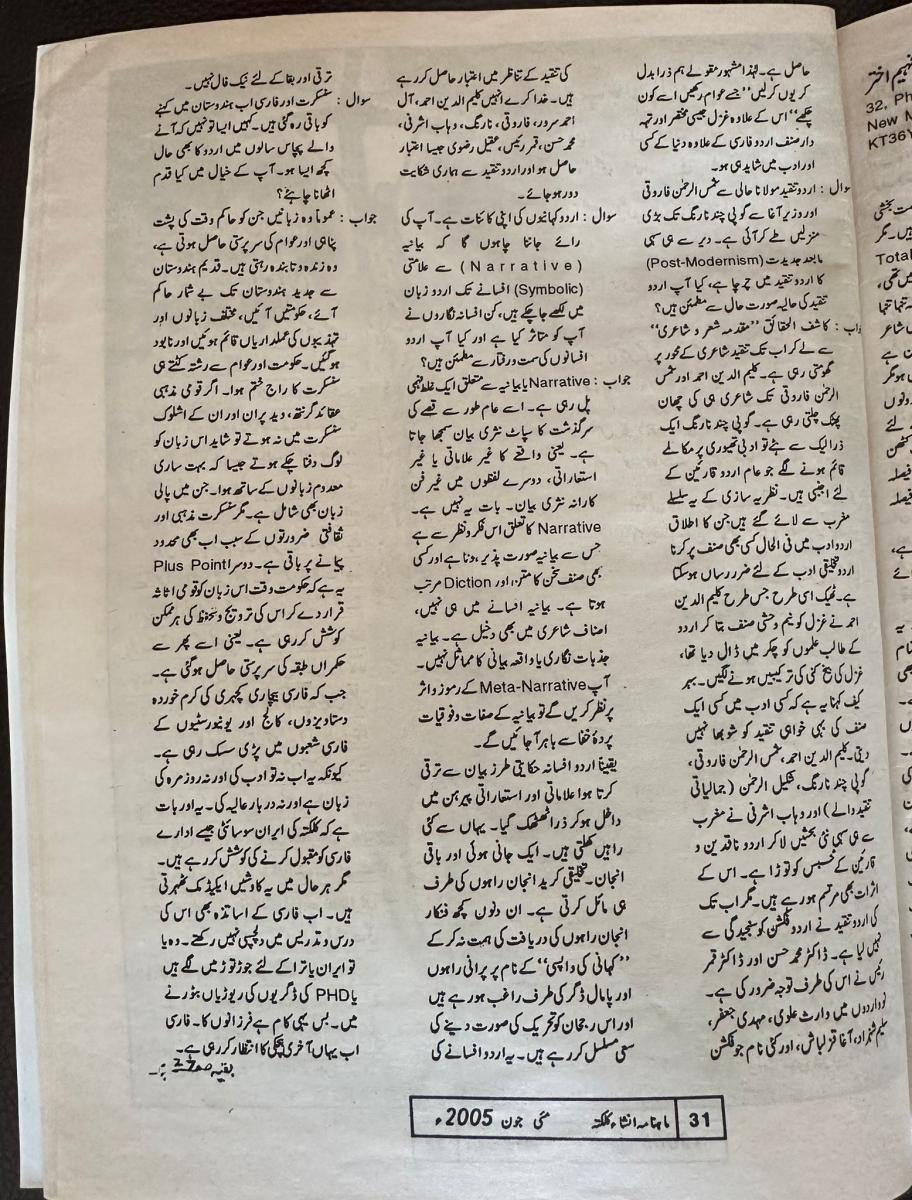 حاصل ہے۔ لہٰذا مشہور مقولے ہم ذرا بدل
کر یوں کر لیں ”جسے عوام رکھیں اسے کون
چکھے“ اس کے علاوہ غزل جیسی مختصر اور تہہ
دار صنف اردو فارسی کے علاوہ دنیا کے کسی
اور ادب میں شاید ہی ہو۔
سوال : اردو تنقید مولانا حالی سے شمس الرحمٰن فاروقی
اور وزیر آغا سے گوپی چند نارنگ تک بڑی
منزلیں طے کر آئی ہے۔ دیر سے ہی سہی
مابعد جدیدت (Post-Modernism)
کا اردو تنقید میں چرچا ہے، کیا آپ اردو
تنقید کی حالیہ صورت حال سے مطمئن ہیں؟
جواب : کاشف الحقائق ”مقدمہ شعر و شاعری“
سے لے کر اب تک تنقید شاعری کے محور پر
گھومتی رہی ہے۔ کلیم الدین احمد اور شمس
الرحمٰن فاروقی تک شاعری ہی کی چھان
پھٹک چلتی رہی ہے۔ گوپی چند نارنگ ایک
ذرا لیک سے ہٹے تو ادبی تھیوری پر مکالمے
قائم ہونے لگے جو عام اردو قارئین کے
لئے اجنبی ہیں۔ نظریہ سازی کے یہ سلسلے
مغرب سے لائے گئے ہیں جن کا اطلاق
اردو ادب میں فی الحال کسی بھی صنف پر کرنا
اردو تخلیقی ادب کے لئے ضرر رساں ہو سکتا
ہے۔ ٹھیک اسی طرح جس طرح کلیم الدین
احمد نے غزل کو نیم وحشی صنف بتا کر اردو
کے طالب علموں کو چکر میں ڈال دیا تھا،
غزل کی بیخ کنی کی ترکیبیں ہونے لگیں۔ بہر
کیف کہنا یہ ہے کہ کسی ادب میں کسی ایک
صنف کی بہی خواہی تنقید کو شوبھا نہیں
دیتی۔ کلیم الدین احمد، شمس الرحمٰن فاروقی،
گوپی چند نارنگ، شکیل الرحمٰن (جمالیاتی
تنقید والے) اور وہاب اشرفی نے مغرب
سے ہی سہی نئی بحثیں لا کر اردو ناقدین و
قارئین کے تجسس کو توڑا ہے۔ اس کے
اثرات بھی مرتسم ہو رہے ہیں۔ مگر اب تک
کی اردو تنقید نے اردو فکشن کو سنجیدگی سے
نہیں لیا ہے۔ ڈاکٹر محمد حسن اور ڈاکٹر قمر
رئیس نے اس کی طرف توجہ ضرور کی ہے۔
نوواردوں میں وارث علوی، مہدی جعفر،
سلیم شہزاد، آغا قزلباش، اور کئی نام جو فکشن
کی تنقید کے تناظر میں اعتبار حاصل کر رہے
ہیں۔ خدا کرے انہیں کلیم الدین احمد، آل
احمد سرور، فاروقی، نارنگ، وہاب اشرفی،
محمد حسن، قمر رئیس، عقیل رضوی جیسا اعتبار
حاصل ہو اور اردو تنقید سے ہماری شکایت
دور ہو جائے۔
سوال : اردو کہانیوں کی اپنی کائنات ہے۔ آپ کی
رائے جاننا چاہوں گا کہ بیانیہ
(Narrative) سے علامتی
(Symbolic) افسانے تک اردو زبان
میں لکھے جا چکے ہیں، کن افسانہ نگاروں نے
آپ کو متاثر کیا ہے اور کیا آپ اردو
افسانوں کی سمت و رفتار سے مطمئن ہیں؟
جواب : Narrative یا بیانیہ سے متعلق ایک غلط فہمی
پل رہی ہے۔ اسے عام طور سے قصے کی
سرگذشت کا سپاٹ نثری بیان سمجھا جاتا
ہے۔ یعنی واقعے کا غیر علاماتی یا غیر
استعاراتی، دوسرے لفظوں میں غیر فن
کارانہ نثری بیان۔ بات یہ نہیں ہے۔
Narrative کا تعلق اس فکر و نظر سے ہے
جس سے بیانیہ صورت پذیر ہوتا ہے اور کسی
بھی صنف سخن کا متن، اور Diction مرتب
ہوتا ہے۔ بیانیہ افسانے میں ہی نہیں،
اصناف شاعری میں بھی دخیل ہے۔ بیانیہ
جذبات نگاری یا واقعہ بیانی کا مماثل نہیں۔
آپ Meta-Narrative کے رموز و اثر
پر نظر کریں گے تو بیانیہ کے صفات و فوقیات
پردۂ خفا سے باہر آ جائیں گے۔
یقیناً اردو افسانہ حکایتی طرز بیان سے ترقی
کرتا ہوا علاماتی اور استعاراتی پیرہن میں
داخل ہو کر ذرا ٹھٹھک گیا۔ یہاں سے کئی
راہیں کھلتی ہیں۔ ایک جانی ہوئی اور باقی
انجان۔ تخلیقی کرید انجان راہوں کی طرف
ہی مائل کرتی ہے۔ ان دنوں کچھ فنکار
انجان راہوں کی دریافت کی ہمت نہ کر کے
”کہانی کی واپسی“ کے نام پر پرانی راہوں
اور پامال ڈگر کی طرف راغب ہو رہے ہیں
اور اس رجحان کو تحریک کی صورت دینے کی
سعی مسلسل کر رہے ہیں۔ یہ اردو افسانے کی
ترقی اور بقا کے لئے نیک فال نہیں۔
سوال : سنسکرت اور فارسی اب ہندوستان میں کہنے
کو باقی رہ گئی ہیں۔ کہیں ایسا تو نہیں کہ آنے
والے پچاس سالوں میں اردو کا بھی حال
کچھ ایسا ہو۔ آپ کے خیال میں کیا قدم
اٹھانا چاہئے؟
جواب : عموماً وہ زبانیں جن کو حاکم وقت کی پشت
پناہی اور عوام کی سرپرستی حاصل ہوتی ہے،
وہ زندہ و تابندہ رہتی ہیں۔ قدیم ہندوستان
سے جدید ہندوستان تک بے شمار حاکم
آئے، حکومتیں آئیں، مختلف زبانوں اور
تہذیبوں کی عملداریاں قائم ہوئیں اور نابود
ہو گئیں۔ حکومت اور عوام سے رشتہ کٹتے ہی
سنسکرت کا راج ختم ہوا۔ اگر قومی مذہبی
عقائد گرنتھ، وید پران اور ان کے اشلوک
سنسکرت میں نہ ہوتے تو شاید اس زبان کو
لوگ دفنا چکے ہوتے جیسا کہ بہت ساری
معدوم زبانوں کے ساتھ ہوا۔ جن میں پالی
زبان بھی شامل ہے۔ مگر سنسکرت مذہبی اور
ثقافتی ضرورتوں کے سبب اب بھی محدود
پیمانے پر باقی ہے۔ دوسرا Plus Point
یہ ہے کہ حکومت وقت اس زبان کو قومی اثاثہ
قرار دے کر اس کی ترویج و تحفظ کی ہر ممکن
کوشش کر رہی ہے۔ یعنی اسے پھر سے
حکمراں طبقہ کی سرپرستی حاصل ہو گئی ہے۔
جب کہ فارسی بیچاری کچہری کی کرم خوردہ
دستاویزوں، کالج اور یونیورسٹیوں کے
فارسی شعبوں میں پڑی سسک رہی ہے۔
کیونکہ یہ اب نہ تو ادب کی اور نہ روزمرہ کی
زبان ہے اور نہ دربار عالیہ کی۔ یہ اور بات
ہے کہ کلکتہ کی ایران سوسائٹی جیسے ادارے
فارسی کو مقبول کرنے کی کوشش کر رہے ہیں۔
مگر ہر حال میں یہ کاوشیں ایکیڈمک ٹھہرتی
ہیں۔ اب فارسی کے اساتذہ بھی اس کی
درس و تدریس میں دلچسپی نہیں رکھتے۔ وہ یا
تو ایران یاترا کے لئے جوڑ توڑ میں لگے ہیں
یا PHD کی ڈگریوں کی ریوڑیاں بٹورنے
میں۔ بس یہی کام ہے فرزانوں کا۔ فارسی
اب یہاں آخری ہچکی کا انتظار کر رہی ہے۔
بقیہ صـ 27 پر
31 ماہنامہ انشاء کلکتہ مئی جون 2005ء
فہیم اختر
32, Ph
New M
KT36Y
Total